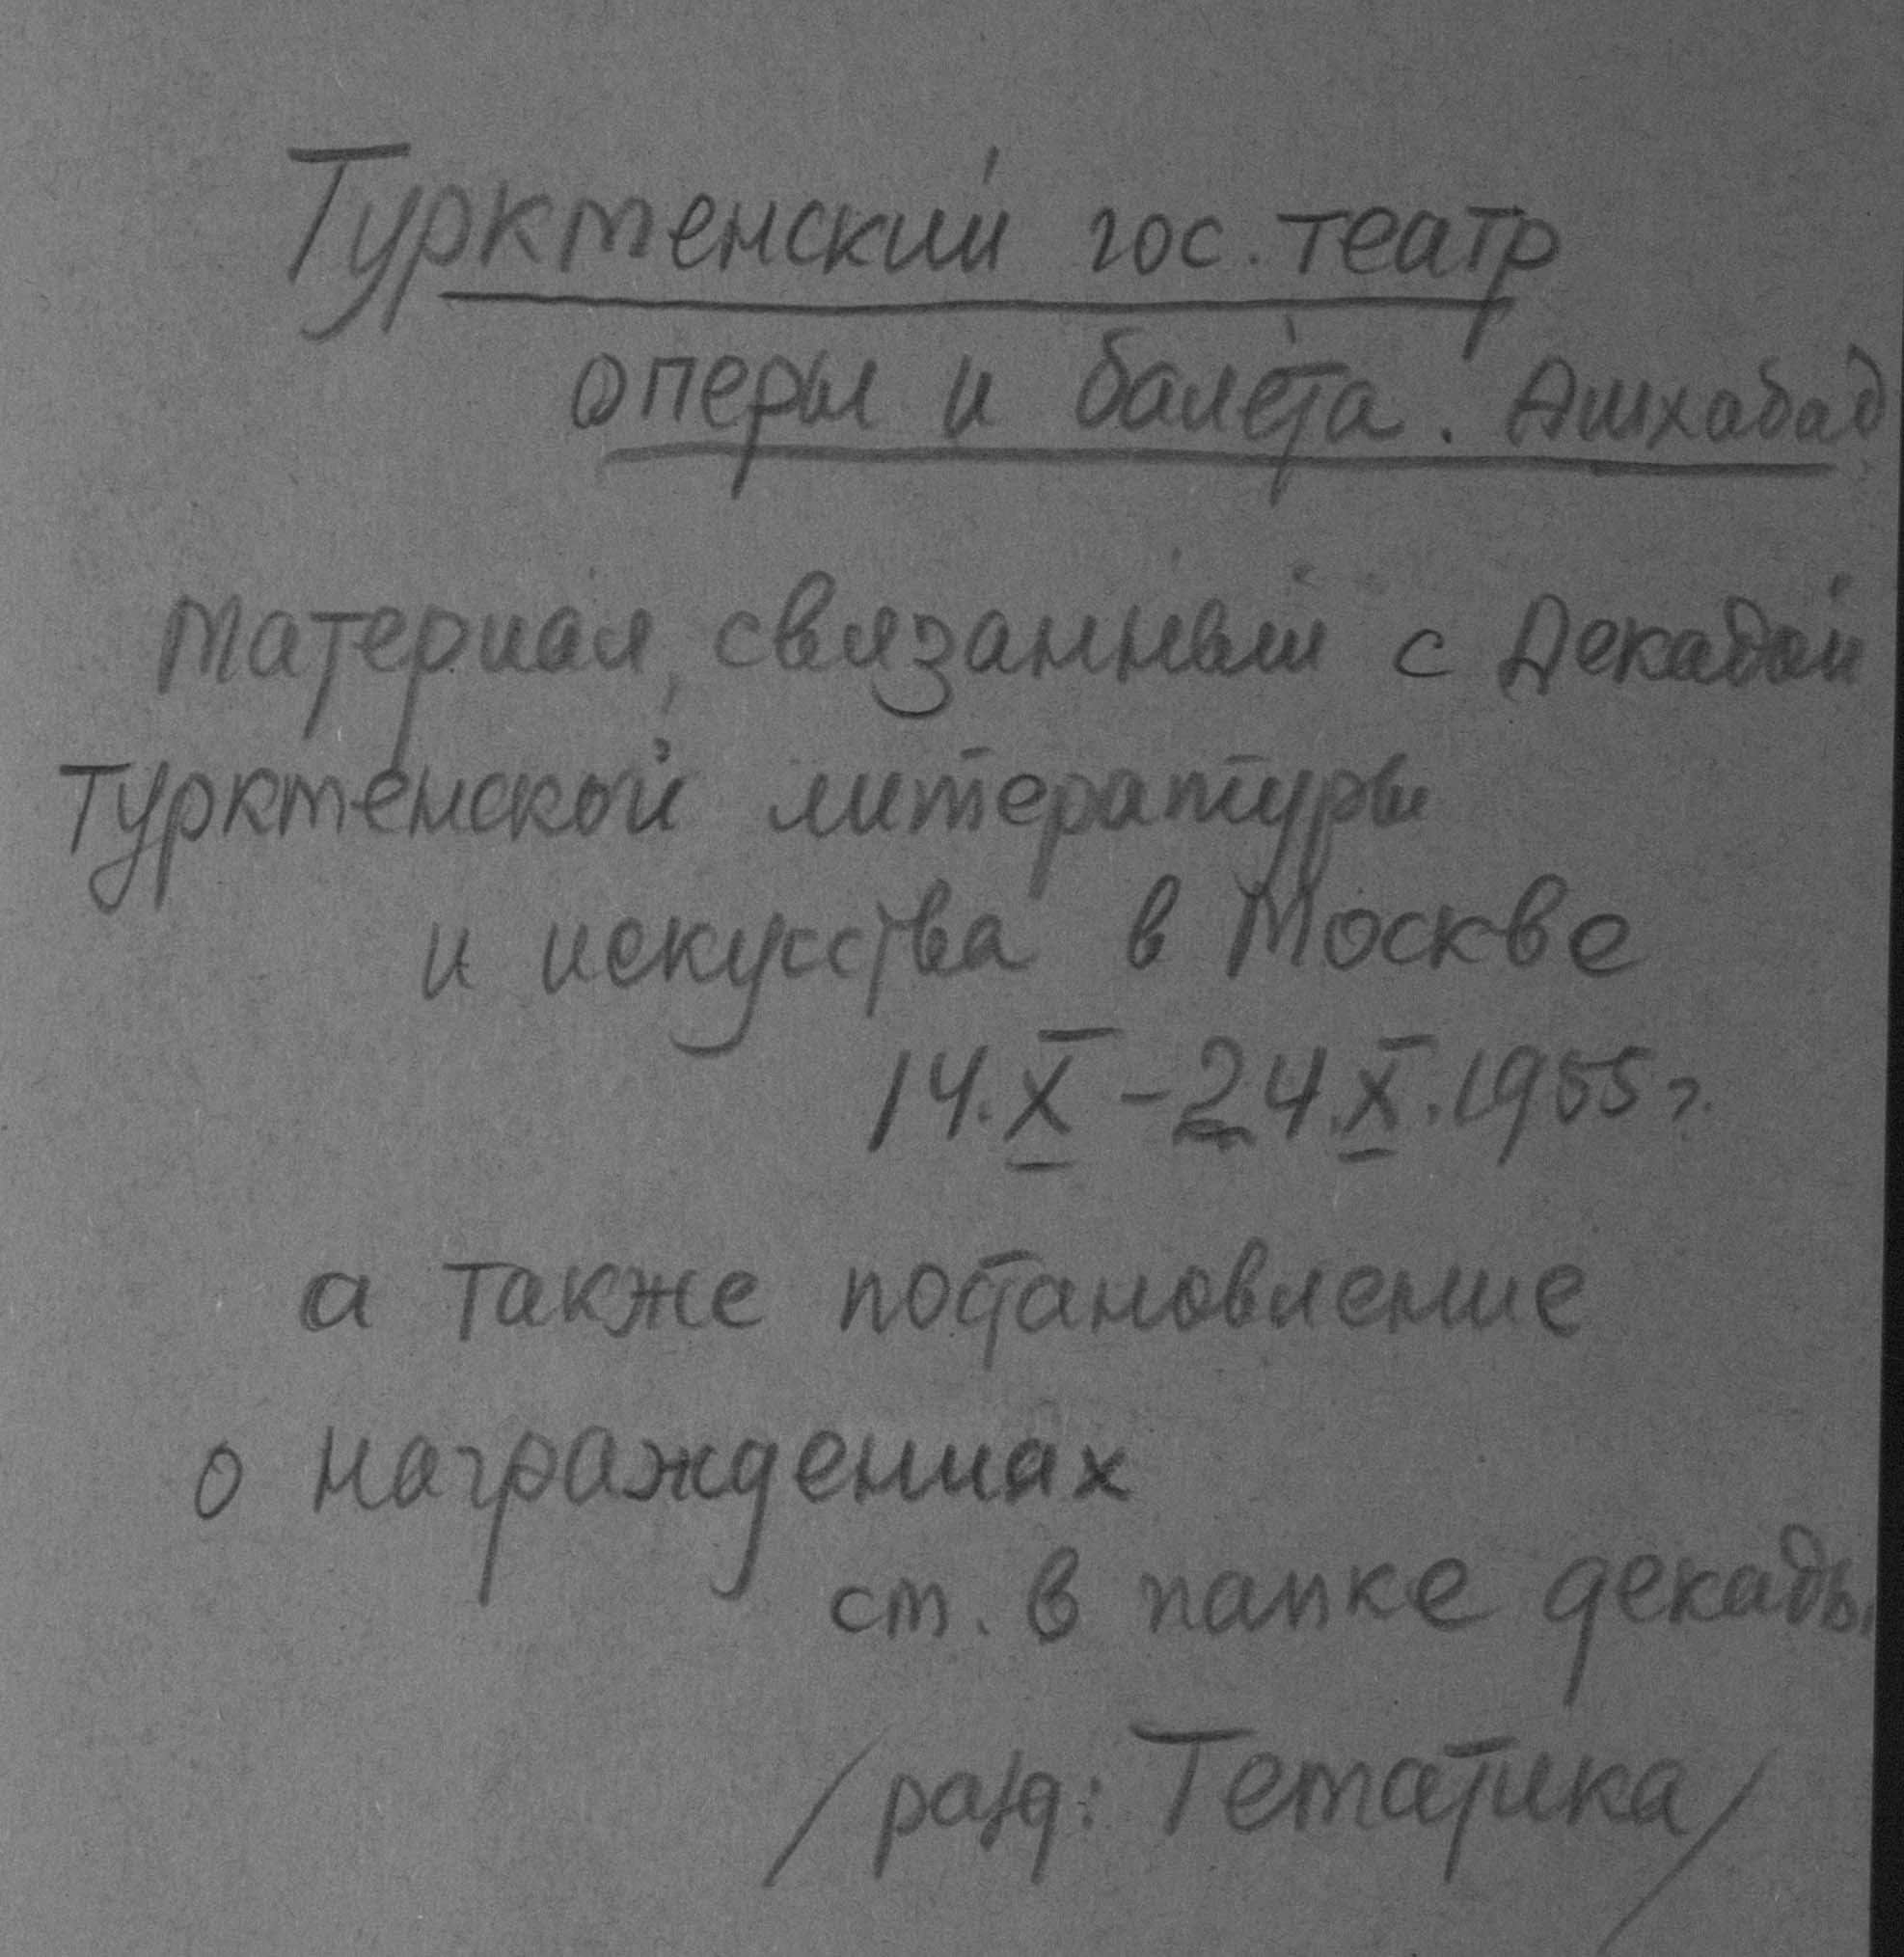 Туркменский гос. театр
оперы и балета. Ашхабад
Материал, связанный с Декадой
Туркменской литературы
и искусства в Москве
14.X-24.X.1955 г.
а также постановление
о награждениях
см. в папке декады
/разд: Тематика/